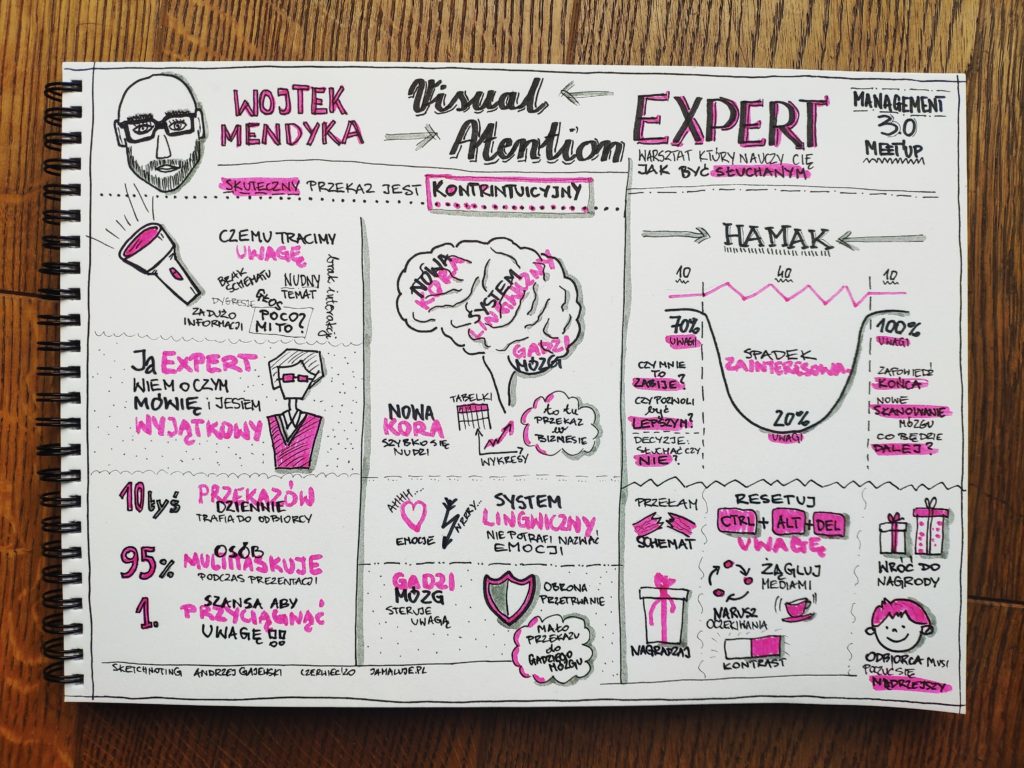 WOJTEK
MENDYKA
Visual
Atention
EXPERT
WARSZTAT KTÓRY NAUCZY CIĘ
JAK BYĆ SŁUCHANYM
MANAGEMENT
3.0
MEETUP
SKUTECZNY PRZEKAZ JEST KONTRINTUICYJNY
CZEMU TRACIMY
UWAGĘ
BRAK
SCHEMATU
NUDNY
TEMAT
brak interakcji
DYGRESJE
GŁOS
ZA DUŻO
INFORMACJI
PO CO?
MI TO?
Ja EXPERT
WIEM O CZYM
MÓWIĘ i JESTEM
WYJĄTKOWY
10 tyś PRZEKAZÓW
DZIENNIE
TRAFIA DO ODBIORCY
95% OSÓB
MULTITASKUJE
PODCZAS PREZENTACJI
1. SZANSA ABY
PRZYCIĄGNĄĆ
UWAGĘ !!
NOWA
KORA
SYSTEM
LINGWICZNY
GADZI
MÓZG
NOWA
KORA
SZYBKO SIĘ
NUDZI
TABELKI
WYKRESY
to tu
PRZEKAZ
w
BIZNESIE
AHHH...
EMOCJE
SYSTEM
LINGWICZNY,
NIE POTRAFI NAZWAĆ
EMOCJI
GADZI
MÓZG
STERUJE
UWAGĄ
OBRONA
PRZETRWANIE
MAŁO
PRZEKAZU
do
GADZIEGO
MÓZGU
HAMAK
10 40 10
70%
UWAGI
100%
UWAGI
SPADEK
ZAINTERESOWA-
20%
UWAGI
CZY MNIE
TO
ZABIJE?
CZY POZWOLI
być
LEPSZYM?
DECYZJE:
SŁUCHAĆ CZY
NIE?
ZAPOWIEDŹ
KOŃCA
NOWE
SKANOWANIE
MÓZGU
CO BĘDZIE
DALEJ?
PRZEŁAM
SCHEMAT
NAGRADZAJ
RESETUJ
CTRL + ALT + DEL
UWAGĘ
ŻĄGLUJ
MEDIAMI
NARUSZ
OCZEKIWANIA
KONTRAST
WRÓĆ DO
NAGRODY
ODBIORCA MUSI
POCZUĆ SIĘ
MĄDRZEJSZY
SKETCHNOTING ANDRZEJ GAJEWSKI CZERWIEC'20 JAMALUJE.PL